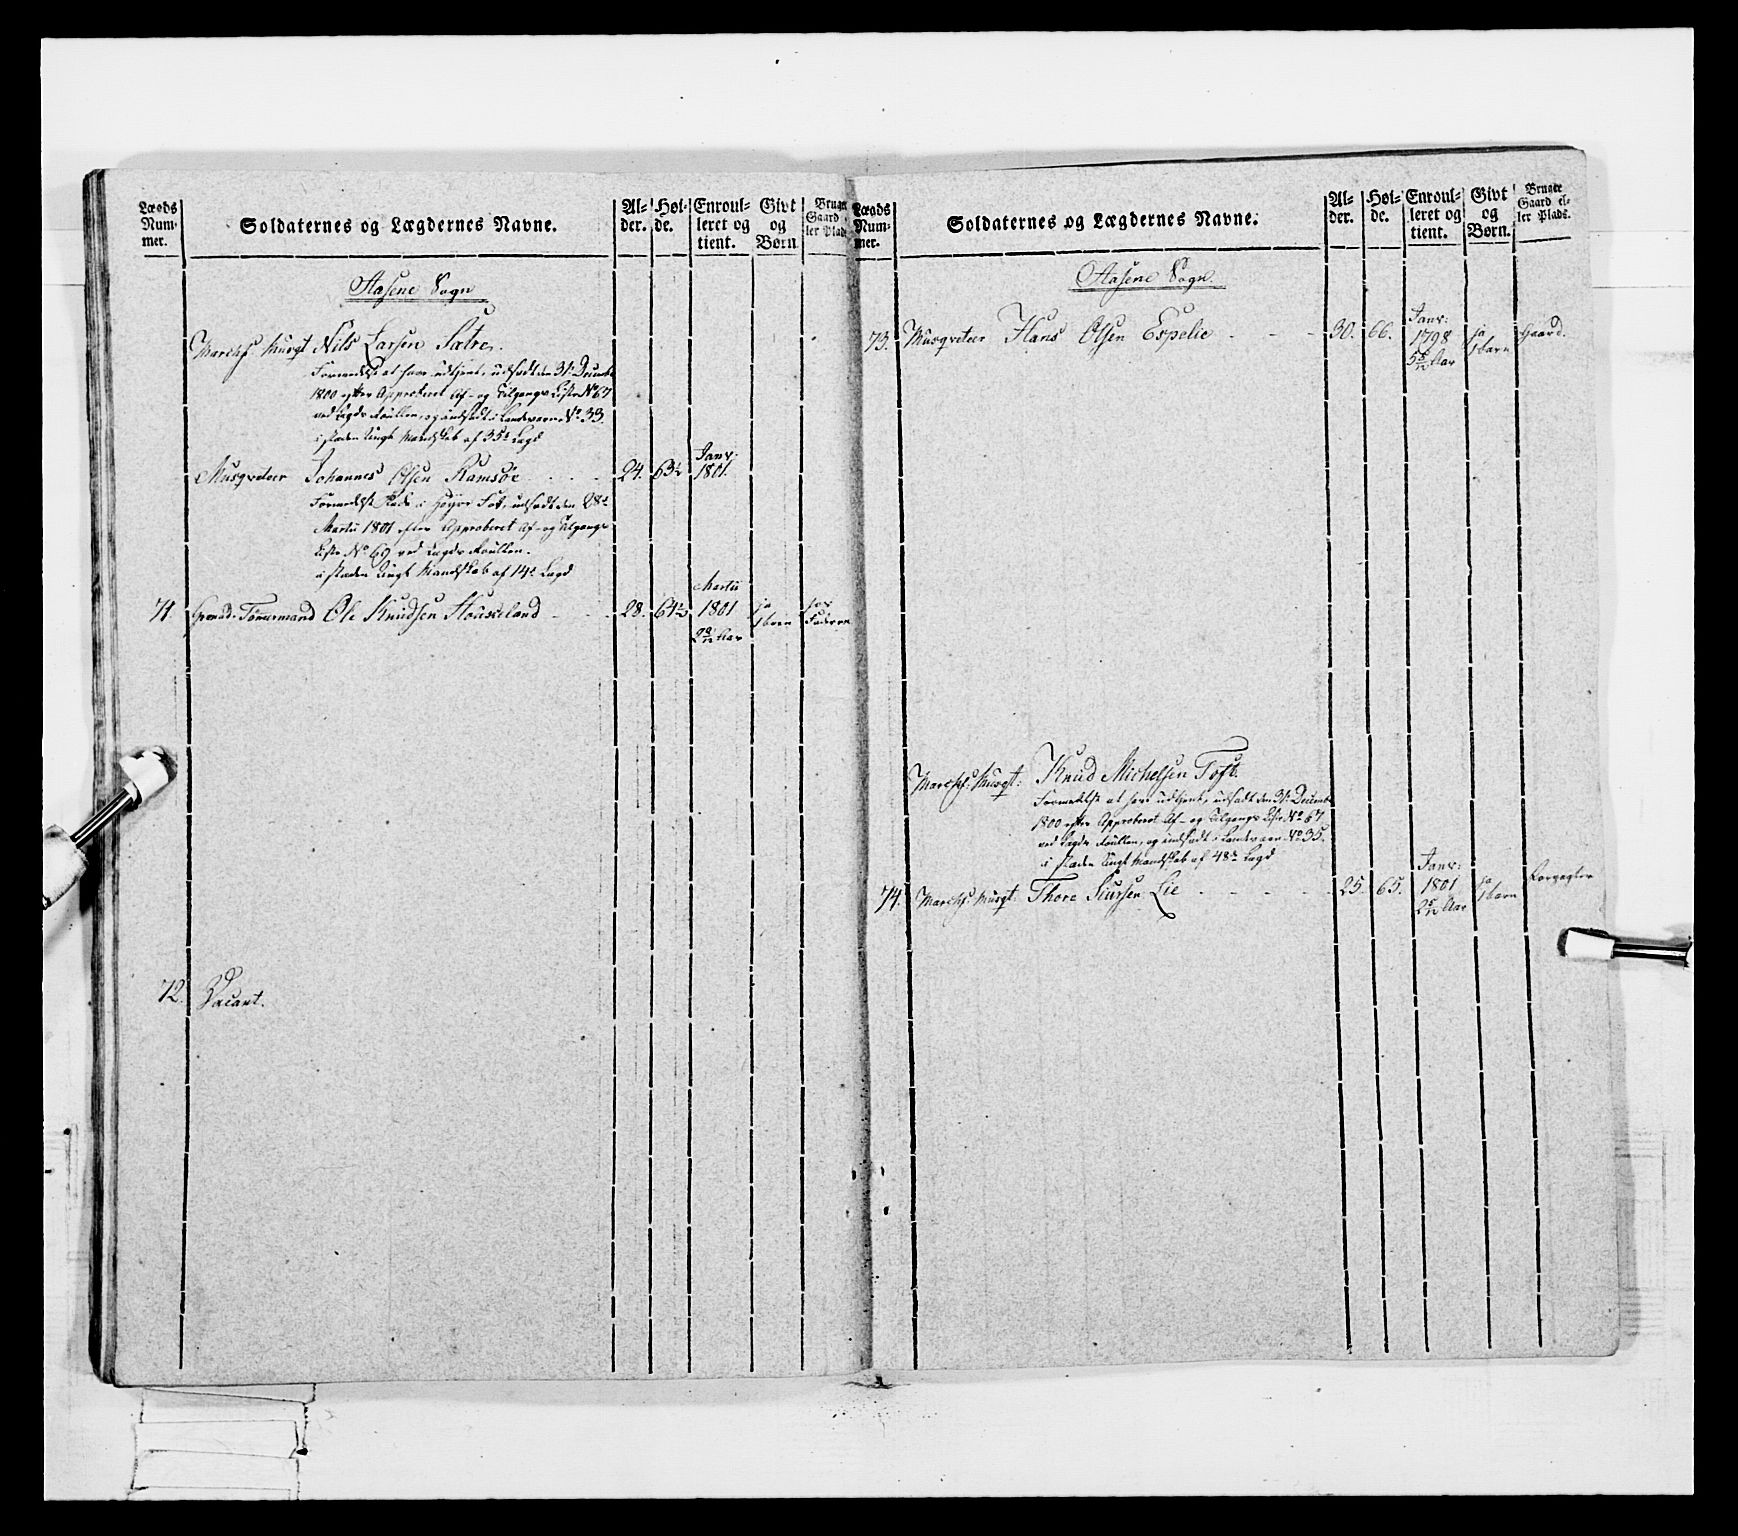 Lægds Num- mer.
Soldaternes og Lægdernes Navne.
Al- der.
Høi- de.
Enroul- leret og tient.
Givt og Børn
Bruger Gaard el- ler Plads
Aasene Sogn
Marchs: Musqt Nils Larsen Sætre.
Formedelst at have udtient, udsadt den 31te Decembr
1800 efter Approberet Af- og Tilgangs Liste No 67
ved Lægds Roullen, og indsadt i Landeværn No 33.
i staden Ungt Mandskab af 35te Lægd
Musqveteer Johannes Olsen Ramsøe 24. 63½ Janv: 1801.
Formedelst Skade i Høyre Fod, udsadt den 28de
Martii 1801 efter Approberet Af- og Tilgangs
Liste No 69 ved Lægds Roullen.
i staden Ungt Mandskab af 14de Lægd
71. Grenad. Tømermand Ole Knudsen 28. 64½ Martii 1801 ja 1 barn hos Faderen
72. Vacant.
Lægds Num- mer.
Soldaternes og Lægdernes Navne.
Al- der.
Høi- de.
Enroul- leret og tient.
Givt og Børn.
Bruger Gaard el- ler Plads.
Aasene Sogn.
73. Musqveteer Hans Olsen Espelie 30. 66. Janv: 1798 5 5/12 Aar ja 1 barn Gaard.
Marchs: Musqt: Knud Michelsen Toft.
Formedelst at have udtient, udsadt den 31te Decembr
1800 efter Approberet Af- og Tilgangs Liste No 67
ved Lægds Roullen, og indsadt i Landeværn No 35.
i staden Ungt Mandskab af 48de Lægd
74. Marchs: Musqt: Thore Siursen Lie 25. 65. Janv: 1801 2 5/12 Aar ja 1 barn Forpagter